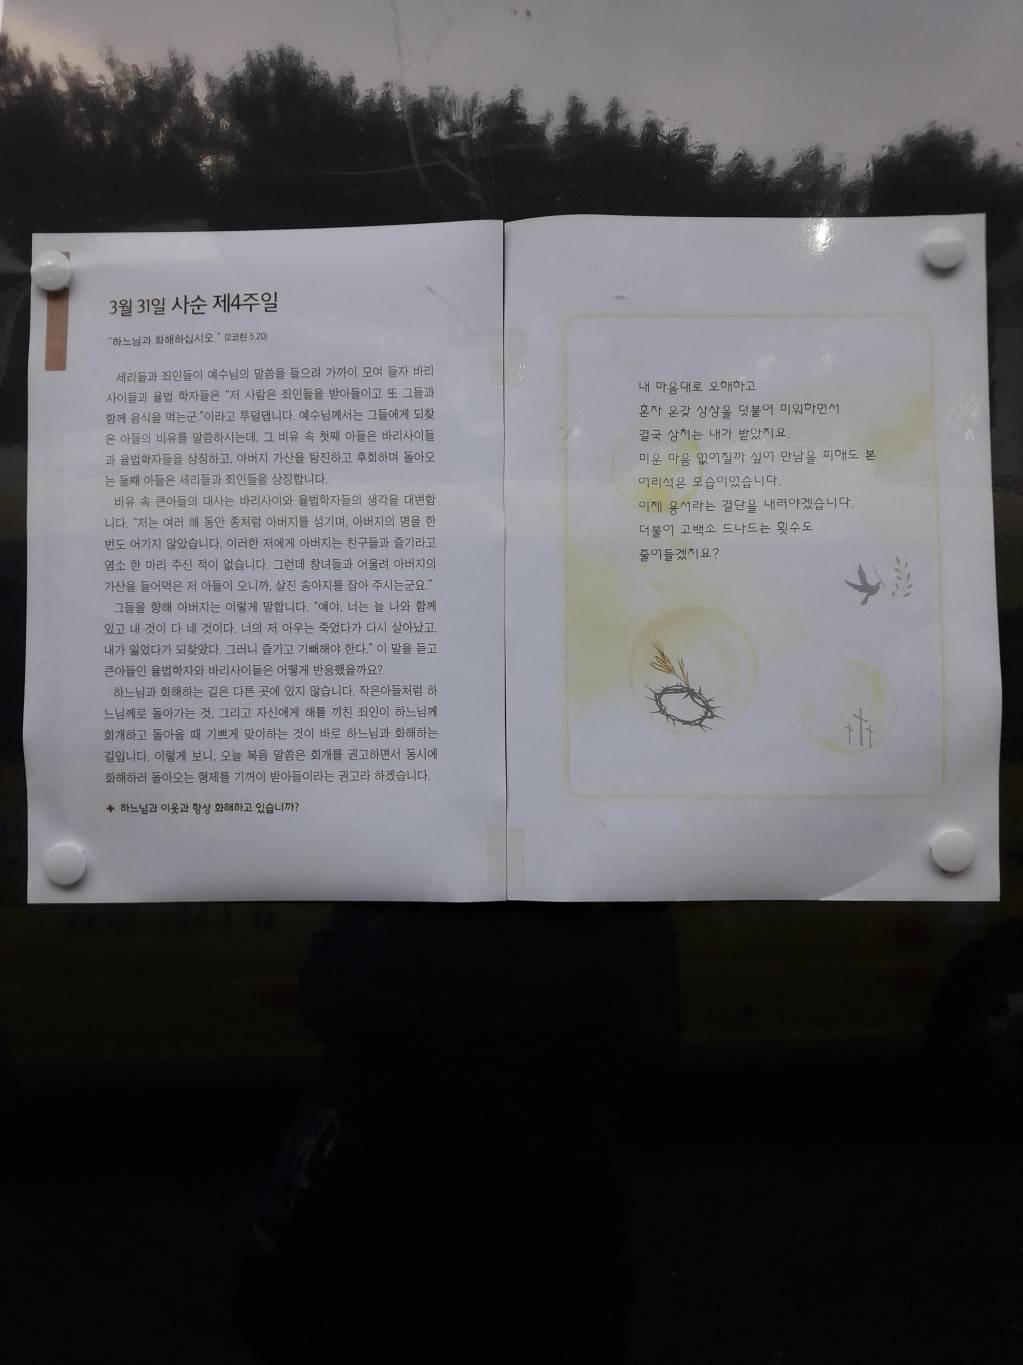 3월 31일 사순 제4주일
"하느님과 화해하십시오." (2코린 5,20)
세리들과 죄인들이 예수님의 말씀을 들으려 가까이 모여 들자 바리
사이들과 율법 학자들은 "저 사람은 죄인들을 받아들이고 또 그들과
함께 음식을 먹는군."이라고 투덜댑니다. 예수님께서는 그들에게 되찾
은 아들의 비유를 말씀하시는데, 그 비유 속 첫째 아들은 바리사이들
과 율법학자들을 상징하고, 아버지 가산을 탕진하고 후회하며 돌아오
는 둘째 아들은 세리들과 죄인들을 상징합니다.
비유 속 큰아들의 대사는 바리사이와 율법학자들의 생각을 대변합
니다. "저는 여러 해 동안 종처럼 아버지를 섬기며, 아버지의 명을 한
번도 어기지 않았습니다. 이러한 저에게 아버지는 친구들과 즐기라고
염소 한 마리 주신 적이 없습니다. 그런데 창녀들과 어울려 아버지의
가산을 들어먹은 저 아들이 오니까, 살진 송아지를 잡아 주시는군요."
그들을 향해 아버지는 이렇게 말합니다. "얘야, 너는 늘 나와 함께
있고 내 것이 다 네 것이다. 너의 저 아우는 죽었다가 다시 살아났고,
내가 잃었다가 되찾았다. 그러니 즐기고 기뻐해야 한다." 이 말을 듣고
큰아들인 율법학자와 바리사이들은 어떻게 반응했을까요?
하느님과 화해하는 길은 다른 곳에 있지 않습니다. 작은아들처럼 하
느님께로 돌아가는 것, 그리고 자신에게 해를 끼친 죄인이 하느님께
회개하고 돌아올 때 기쁘게 맞이하는 것이 바로 하느님과 화해하는
길입니다. 이렇게 보니, 오늘 복음 말씀은 회개를 권고하면서 동시에
화해하러 돌아오는 형제를 기꺼이 받아들이라는 권고라 하겠습니다.
✚ 하느님과 이웃과 항상 화해하고 있습니까?
내 마음대로 오해하고
혼자 온갖 상상을 덧붙여 미워하면서
결국 상처는 내가 받았지요.
미운 마음 없어질까 싶어 만남을 피해도 본
어리석은 모습이었습니다.
이제 용서라는 결단을 내려야겠습니다.
더불어 고백소 드나드는 횟수도
줄어들겠지요?